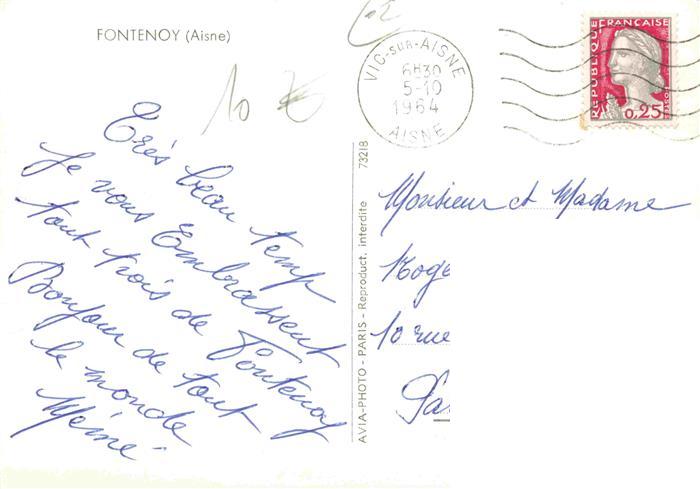 FONTENOY (Aisne)
10 €
VIC-SUR-AISNE
6H30
5-10
1964
AISNE
REPUBLIQUE FRANÇAISE
0,25
Très beau temp
Je vous Embrassent
tout trois de Fontenoy
Bonjour de tout
le monde
Mémé
AVIA-PHOTO - PARIS - Reproduct. interdite 73218
Monsieur et Madame
Roge
10 rue